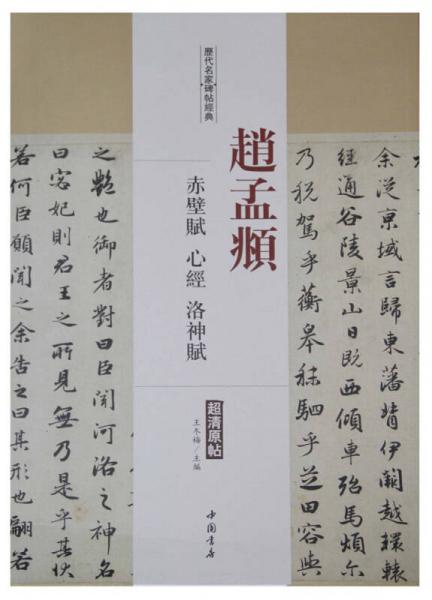 歷代名家碑帖經典
趙孟頫
赤壁賦 心經 洛神賦
超清原帖
王冬梅/主編
中國書店
余從京域言歸東藩背伊闕越轘轅
經通谷陵景山日既西傾車殆馬煩尔
乃稅駕乎蘅皋秣駟乎芝田容與
之艷也御者對曰臣聞河洛之神名
曰宓妃則君王之所見無乃是乎其狀
若何臣願聞之余告之曰其形也翩若